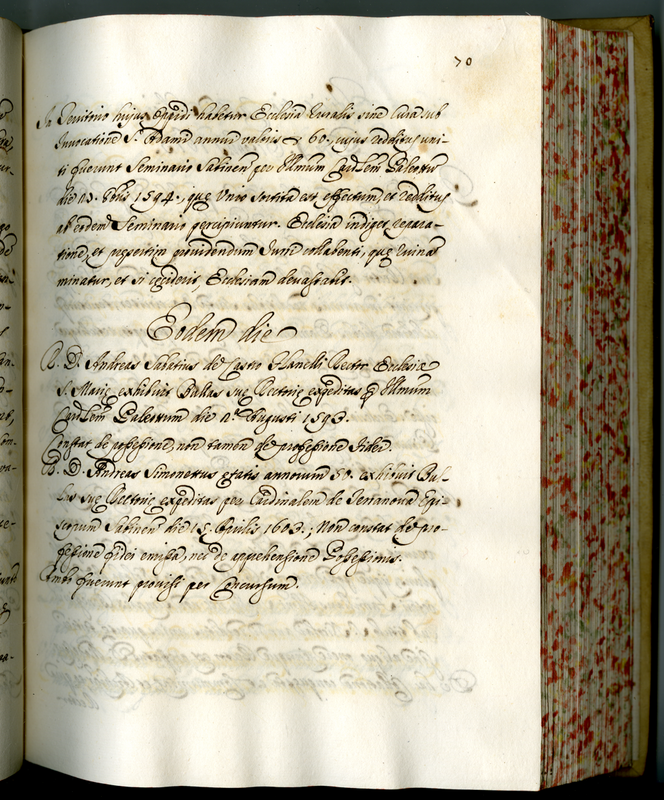 70
In Territorio hujus Oppidi habetur Ecclesia ruralis sine cura sub
Invocatione S. Adami annui valoris 60. cujus redditus uni-
ti fuerunt Seminario Sabinen. per Illmum Cardlem Paleottum
die 23. 1594., que Unio sortita est effectum, et redditus
ab eodem Seminario percipiuntur. Ecclesia indiget repara-
tione, et providendum collabenti, que ruina
minatur, et si ceciderit Ecclesiam devastabit.
Eodem die
R. D. Andreas Sabatius de Castro Ecclesie
S. Marie exhibuit Bullas sue Rectorie expeditas per Illmum
Cardlem Paleottum die 2. Augusti 1593.
Constat de possessione, non tamen de professione fidei.
R. D. Andreas Simonettus etatis annorum 50. exhibuit Bul-
las sue Rectorie expeditas per Cardinalem de Terranova Epi-
scopum Sabinen die 15. Aprilis 1603.; Non constat de pro-
fessione fidei emissa, nec de apprehensione Possessionis.
Ambo fuerunt provisi per Concursum.